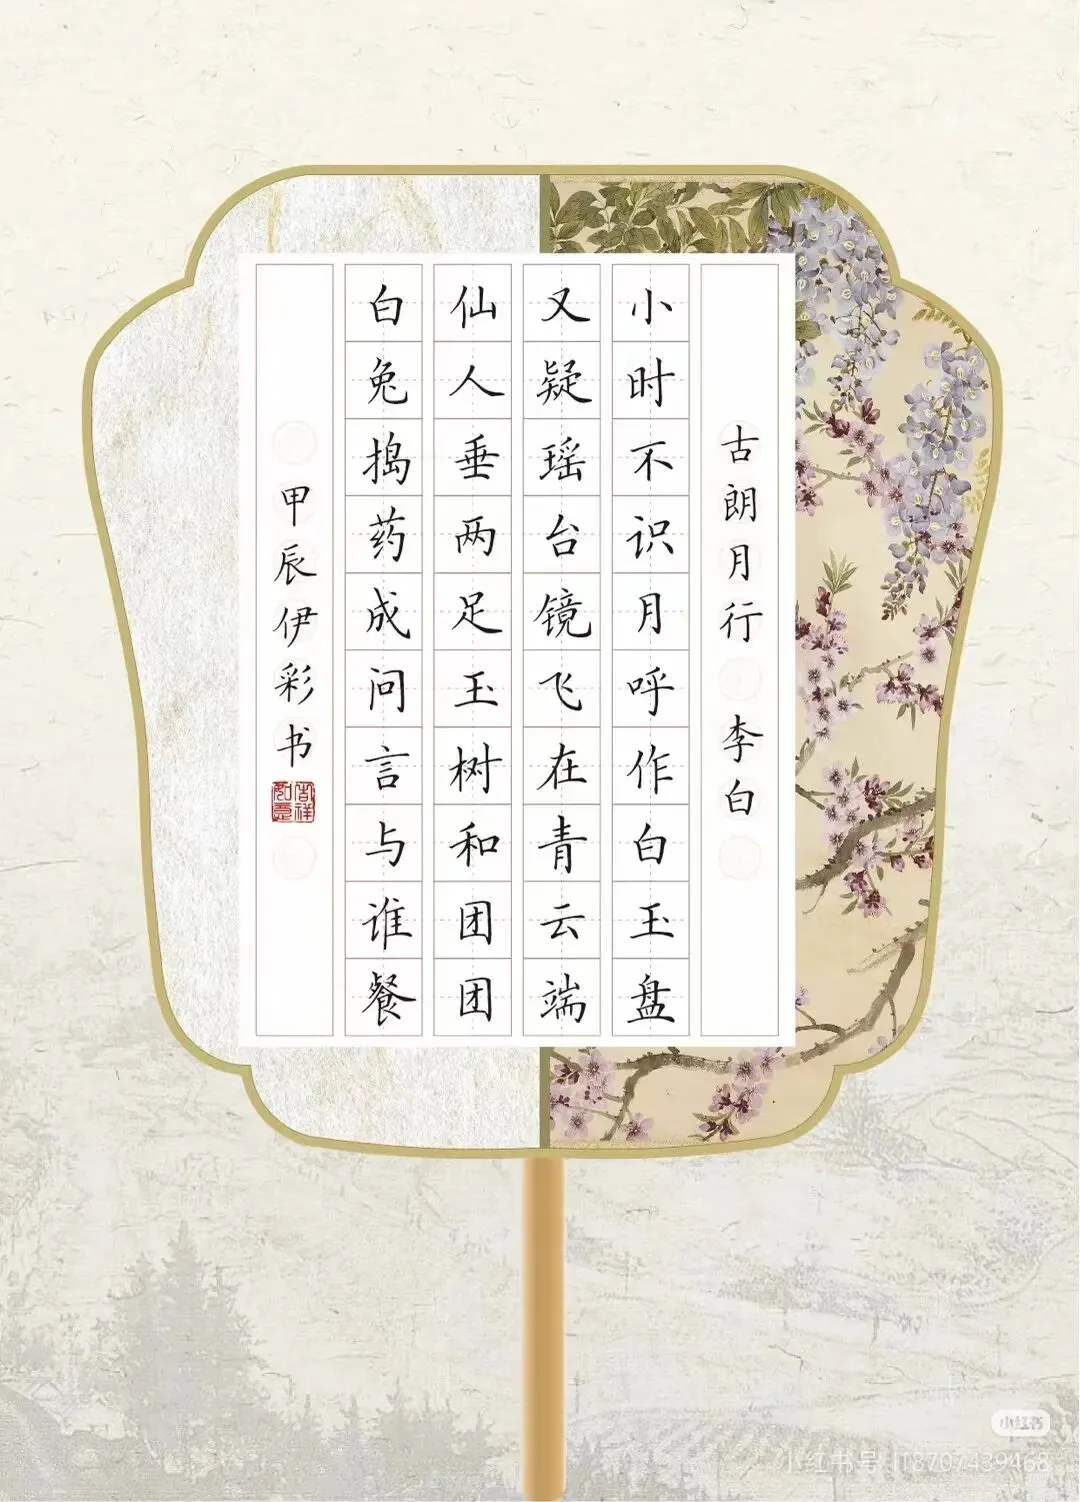 古朗月行 李白
小时不识月呼作白玉盘
又疑瑶台镜飞在青云端
仙人垂两足玉树和团团
白兔捣药成问言与谁餐
甲辰伊彩书
吉祥如意
小红书
小红书号:18707439468